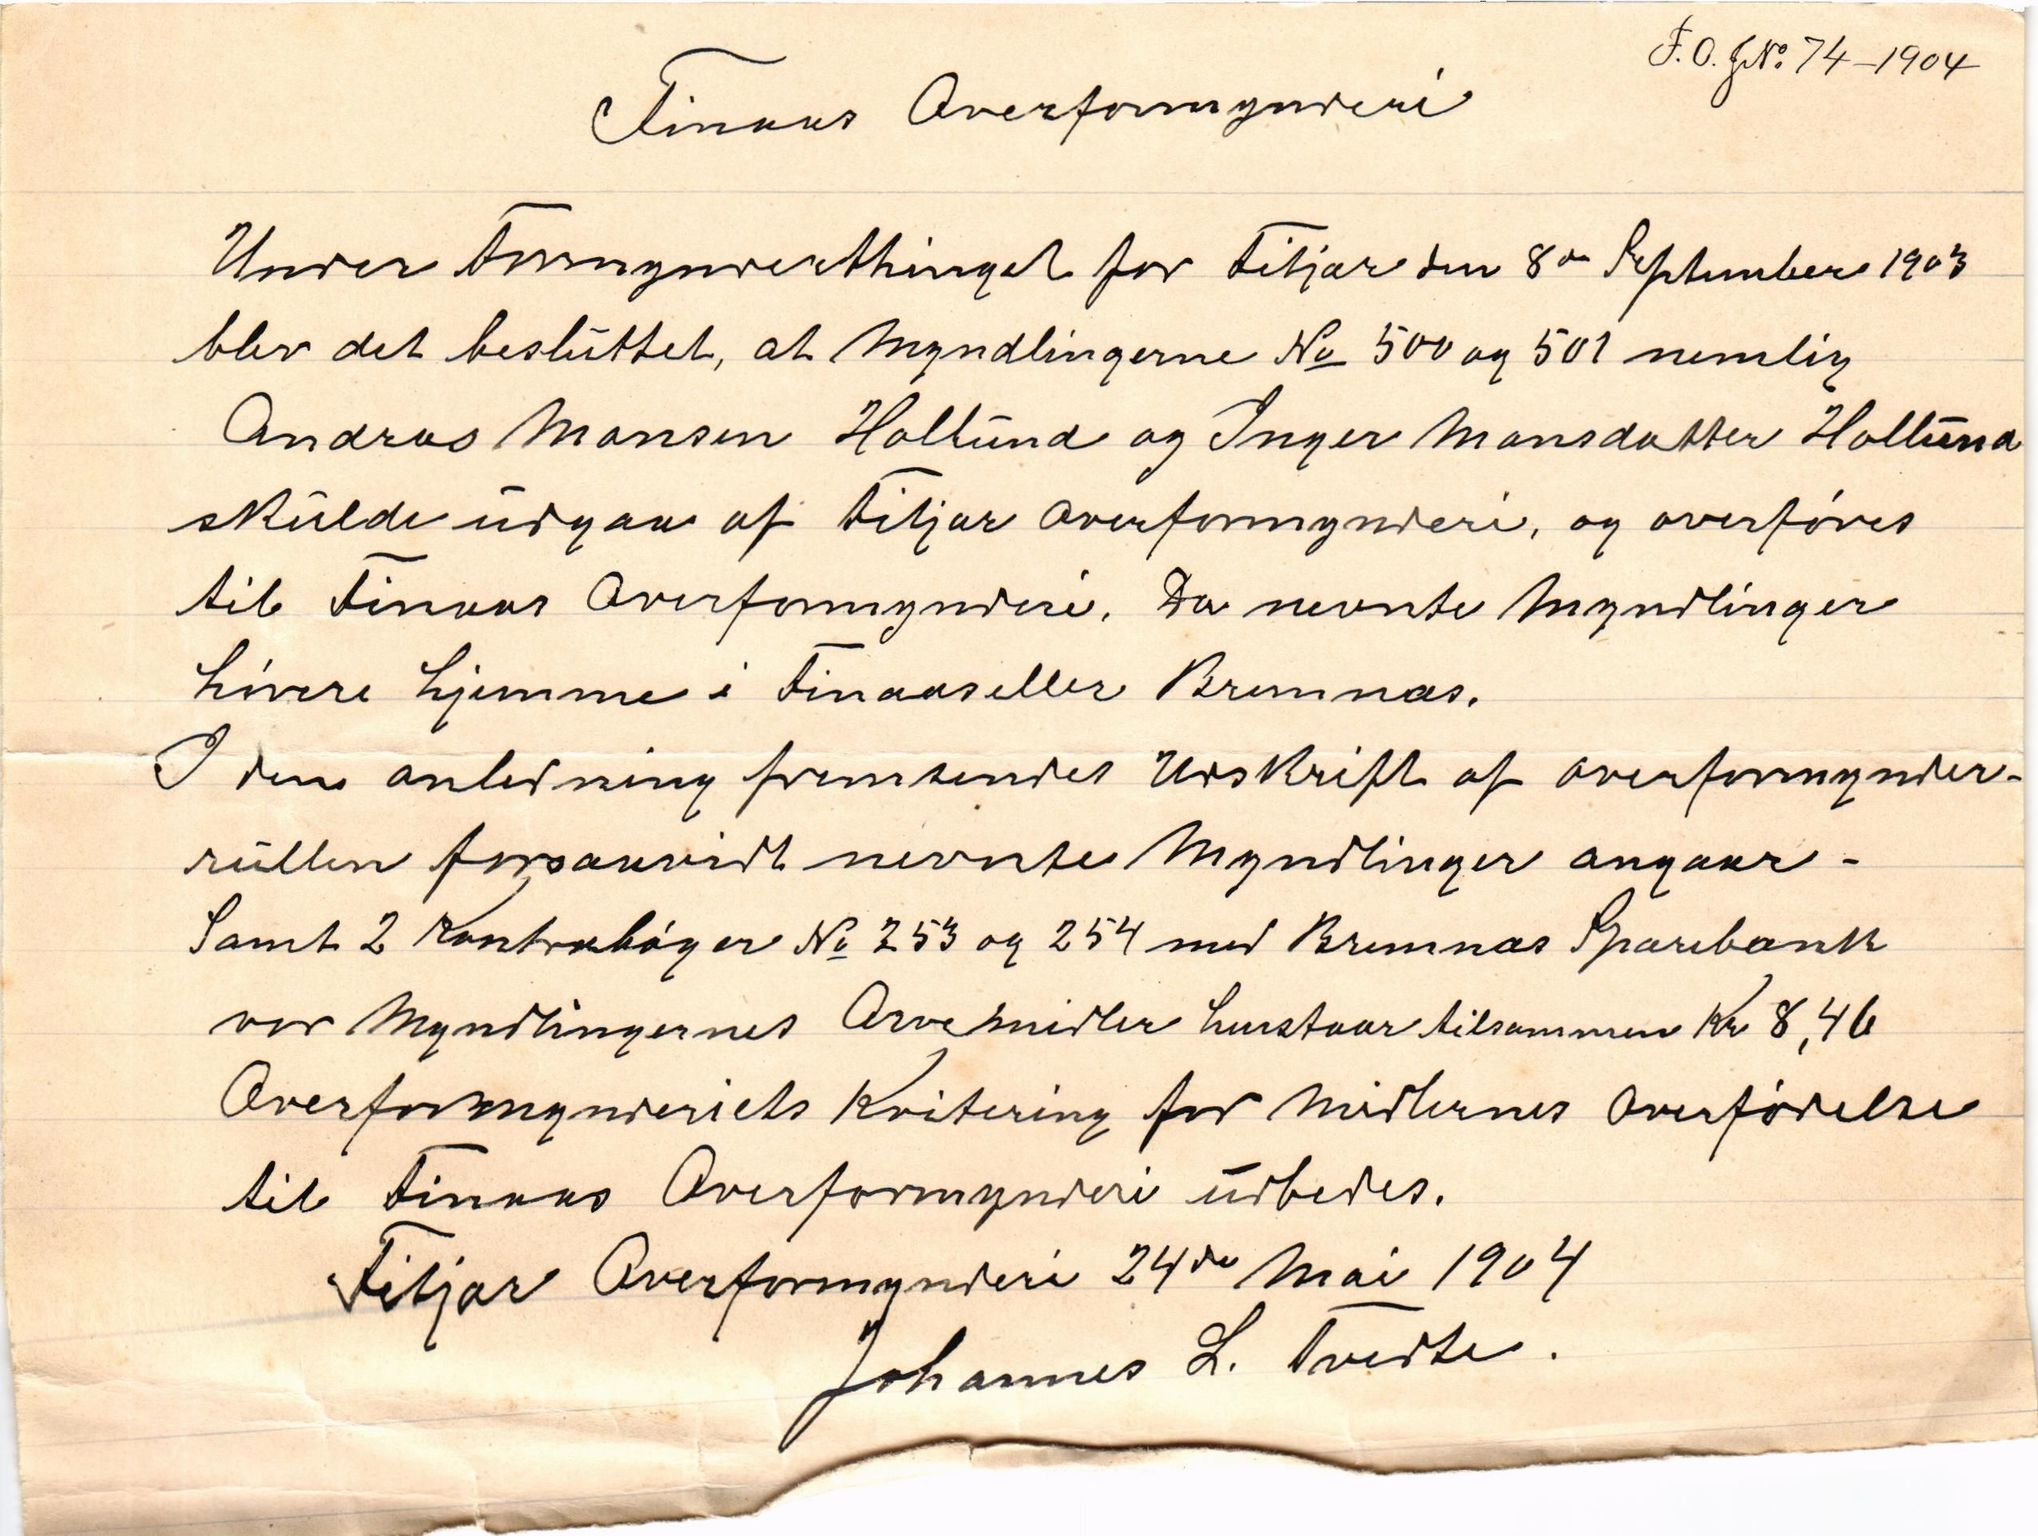 F. O. J No. 74-1904
Finaas Overformynderi
Under Formynderthinget for Fitjar den 8de September 1903
blev det besluttet, at Myndlingerne No 500 og 501 nemlig
Andras Monsen Hollund og Inger Monsdatter Hollund
skulde udgaa af Fitjar overformynderi, og overføres
til Finaas Overformynderi. Da nevnte Myndlinger
hører hjemme i Finaas eller Bremnas.
I den anledning fremsendes Udskrift af overformynder-
rullen forsaavidt nevnte Myndlinger angaar -
Samt 2 Kontrabøger No 253 og 254 med Bremnas Sparebank
vor Myndlingernes Arvemidler henstaar tilsammen Kr 8,46
Overformynderiets Kvitering for Midlernes Overførelse
til Finaas Overformynderi udbedes.
Fitjar Overformynderi 24de Mai 1904
Johannes L. Tvedte.